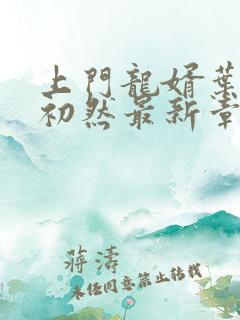 上門龍婿葉
初然最新章
蔣濤
未經同意禁止轉載